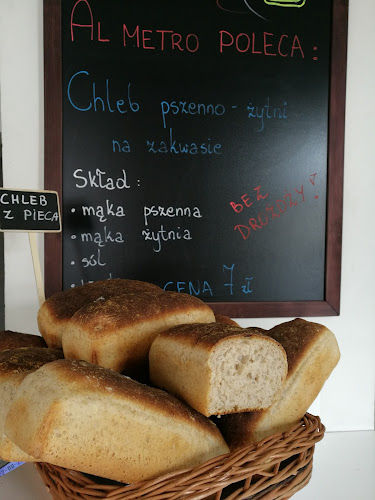 AL METRO POLECA:
Chleb pszenno-żytni
na zakwasie
Skład:
• mąka pszenna
• mąka żytnia
• sól
BEZ
DROŻDŻY!
CENA 7 zł
CHLEB
Z PIECA